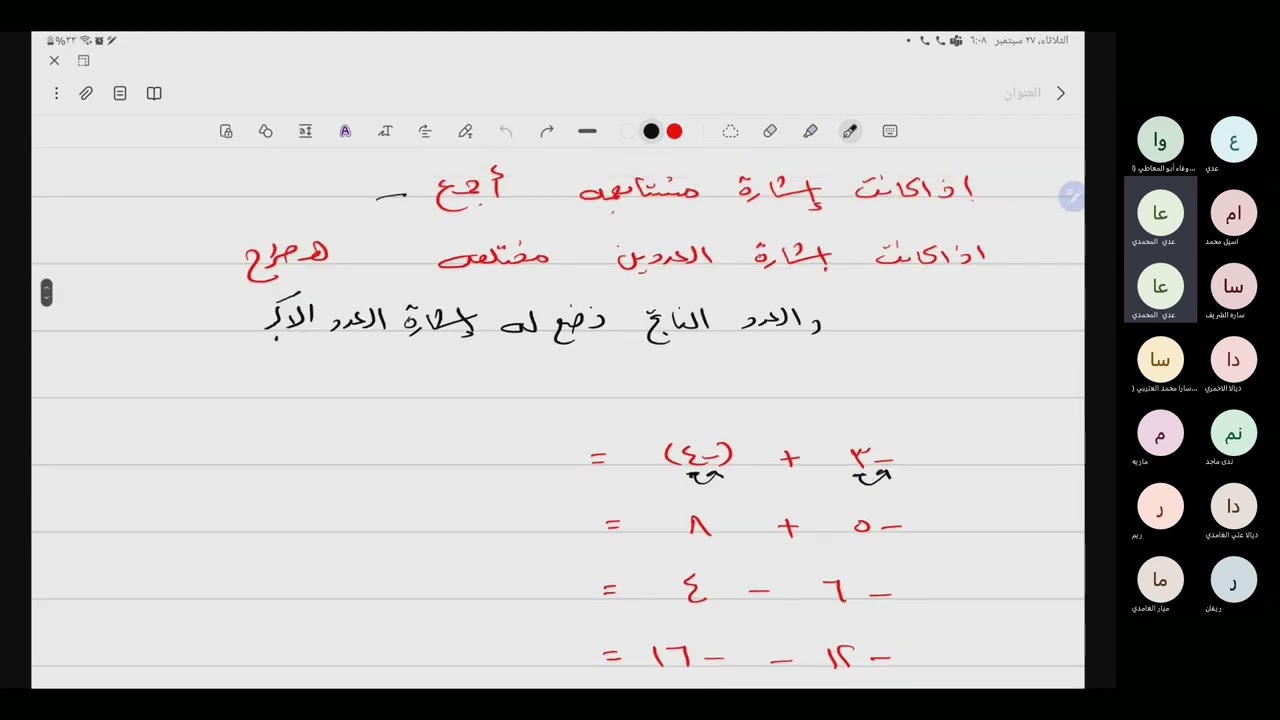 الثلاثاء، ٢٧ سبتمبر ٦:٠٨
٢٢%
العنوان
اذا كانت إشارة متشابهه أجمع
اذا كانت إشارة العددين مختلفه طرح
والعدد الناتج نضع له إشارة العدد الأكبر
-٣ + (-٤) =
-٥ + ٨ =
-٦ - ٤ =
-١٢ - -١٦ =
ع
عدي
وا
وفاء أبو المعاطي (ا...
ام
اسيل محمد
عا
عدي المحمدي
سا
ساره الشريف
عا
عدي المحمدي
دا
ديالا الاحمري
سا
سارا محمد العتيبي (...
نم
ندى ماجد
م
ماريه
دا
ديالا علي الغامدي
ر
ريم
ر
ريفان
ما
ميار الغامدي